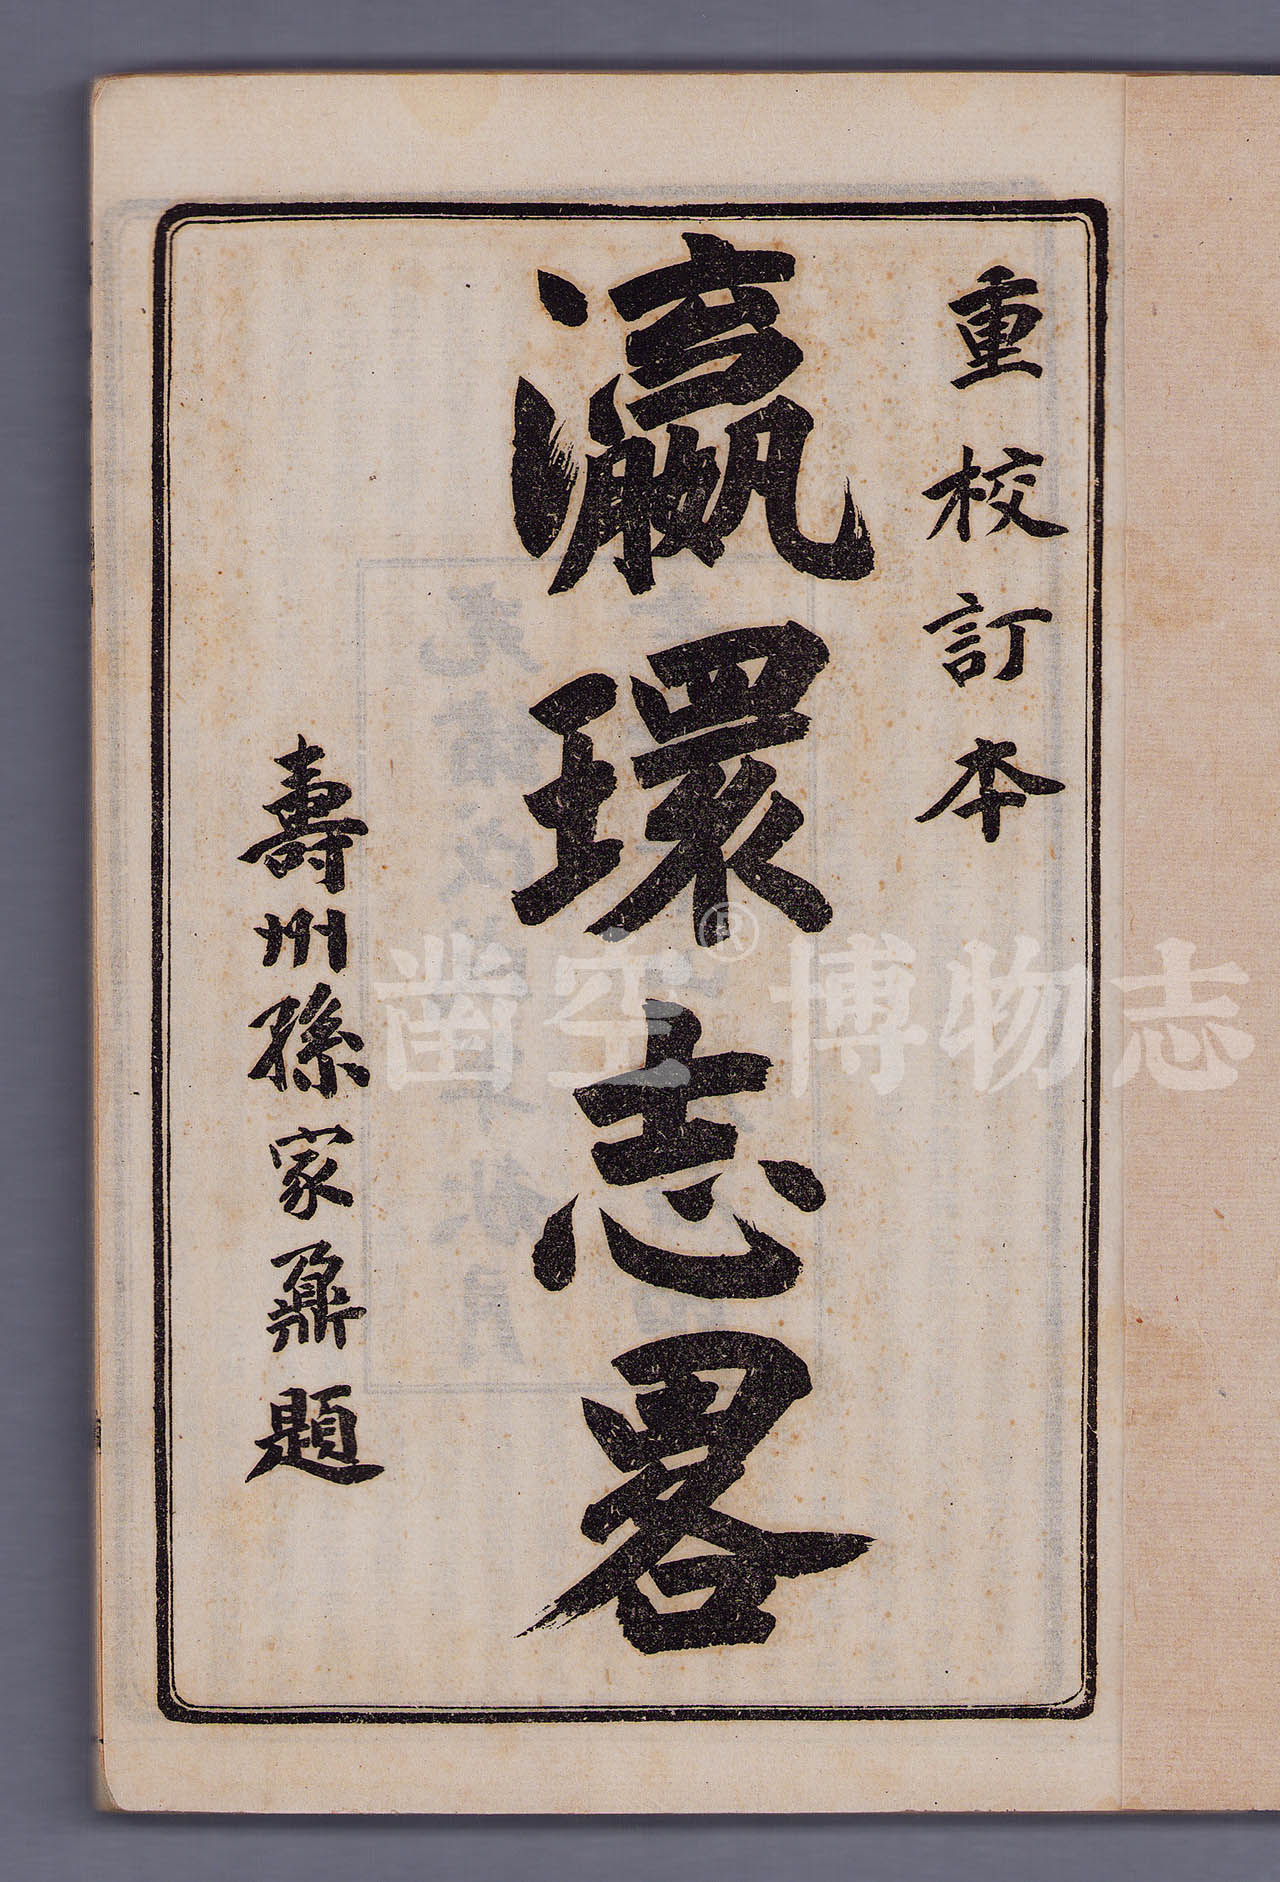 重校訂本
瀛環志畧
壽州孫家鼐題
凿空®博物志